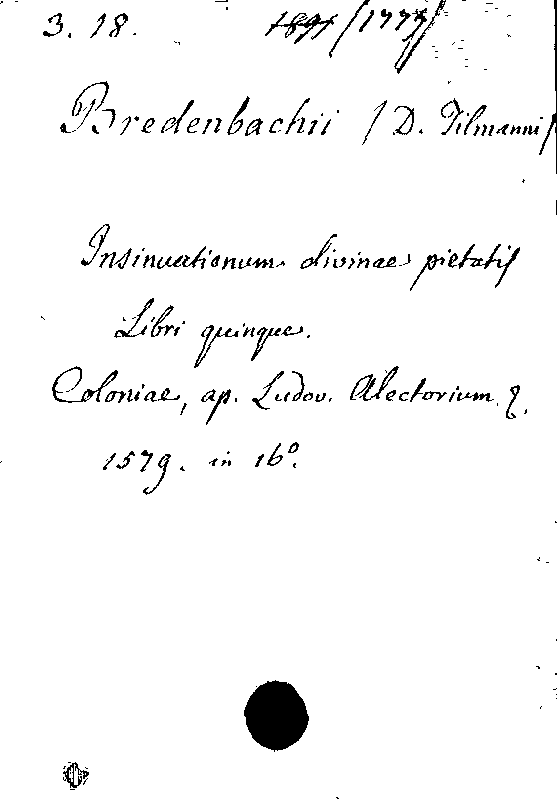 3. 18. 1891 /1777/
Bredenbachii /D. Tilmanni/
Insinuationum divinae pietatis
Libri quinque.
Coloniae, ap. Ludov. Alectorium
1579. in 16º.